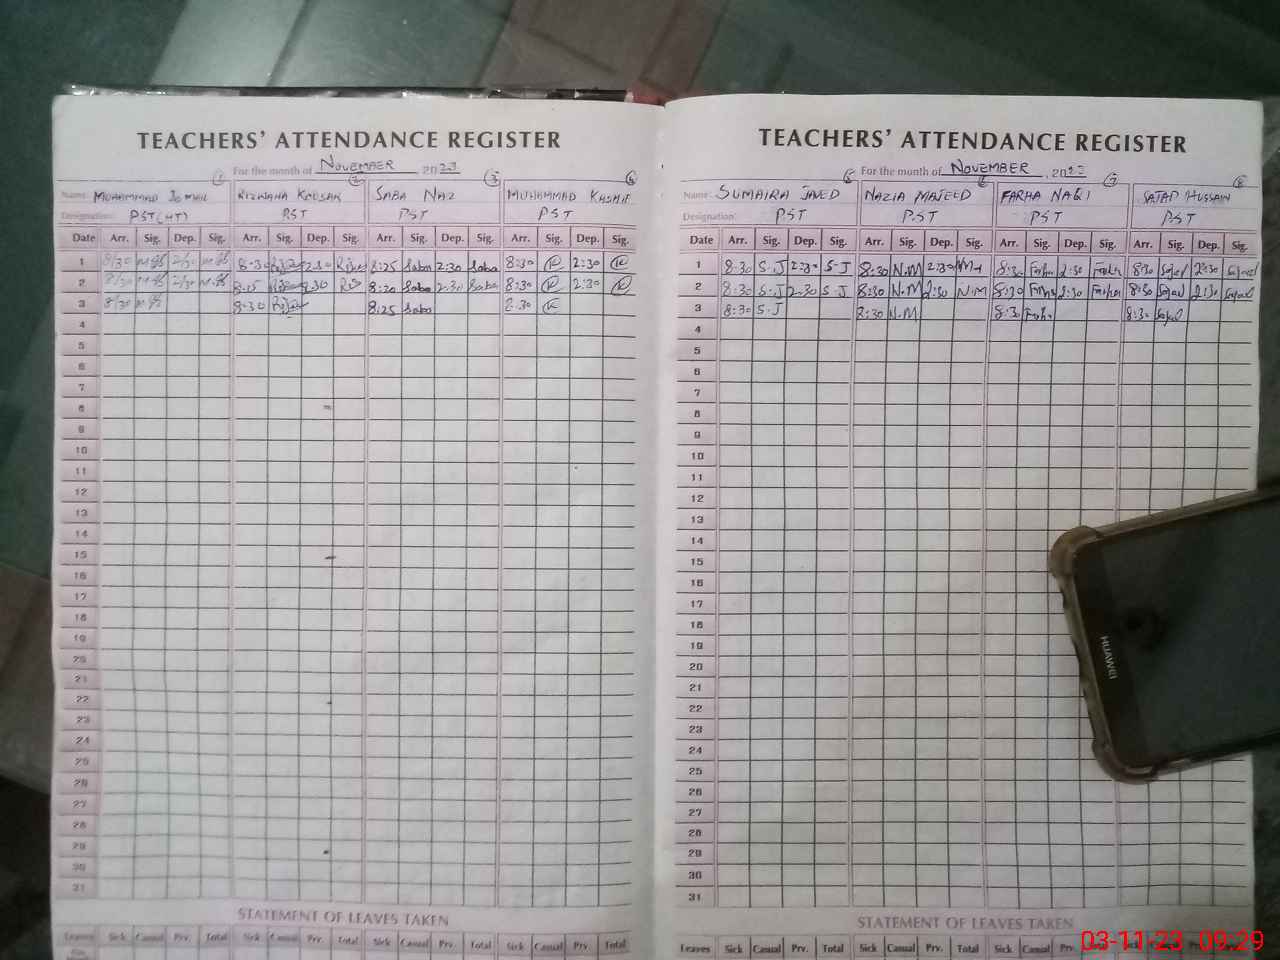 TEACHERS' ATTENDANCE REGISTER
For the month of NOVEMBER 2023
1 2 3 4
Name: MUHAMMAD ISMAIL RIZWANA KAUSAR SABA NAZ MUHAMMAD KASHIF
Designation: PST (HT) PST PST PST
Date Arr. Sig. Dep. Sig. Arr. Sig. Dep. Sig. Arr. Sig. Dep. Sig. Arr. Sig. Dep. Sig.
1 8/30 2/30 8:30 2:30 8:25 Saba 2:30 Saba 8:30 2:30
2 8/30 2/30 8:15 2:30 8:20 Saba 2:30 Saba 8:30 2:30
3 8/30 8:30 8:25 Saba 8:30
4
5
6
7
8
9
10
11
12
13
14
15
16
17
18
19
20
21
22
23
24
25
26
27
28
29
30
31
STATEMENT OF LEAVES TAKEN
Leaves Sick Casual Prv. Total Sick Casual Prv. Total Sick Casual Prv. Total Sick Casual Prv. Total
TEACHERS' ATTENDANCE REGISTER
For the month of NOVEMBER, 2023
5 6 7 8
Name: SUMAIRA JAVED NAZIA MAJEED FARHA NAQI HUSSAIN
Designation: PST PST PST PST
Date Arr. Sig. Dep. Sig. Arr. Sig. Dep. Sig. Arr. Sig. Dep. Sig. Arr. Sig. Dep. Sig.
1 8:30 S.J 2:30 S.J 8:30 N.M 2:30 N.M 8:30 Farha 2:30 Farha 8:30 Sajad 2:30 Sajad
2 8:30 S.J 2:30 S.J 8:30 N.M 2:30 N.M 8:30 Farha 2:30 Farha 8:30 Sajad 2:30 Sajad
3 8:30 S.J 8:30 N.M 8:30 Farha 8:30 Sajad
4
5
6
7
8
9
10
11
12
13
14
15
16
17
18
19
20
21
22
23
24
25
26
27
28
29
30
31
STATEMENT OF LEAVES TAKEN
Leaves Sick Casual Prv. Total Sick Casual Prv. Total Sick Casual Sick Casual Prv. Total
HUAWEI
03-11-23 09:29